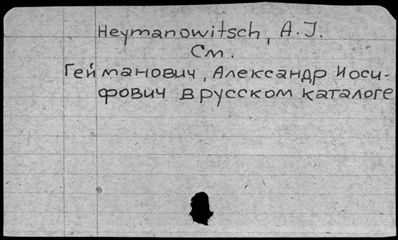 Heymanowitsch, A. J.
См.
Гейманович, Александр Иоси-
фович в русском каталоге